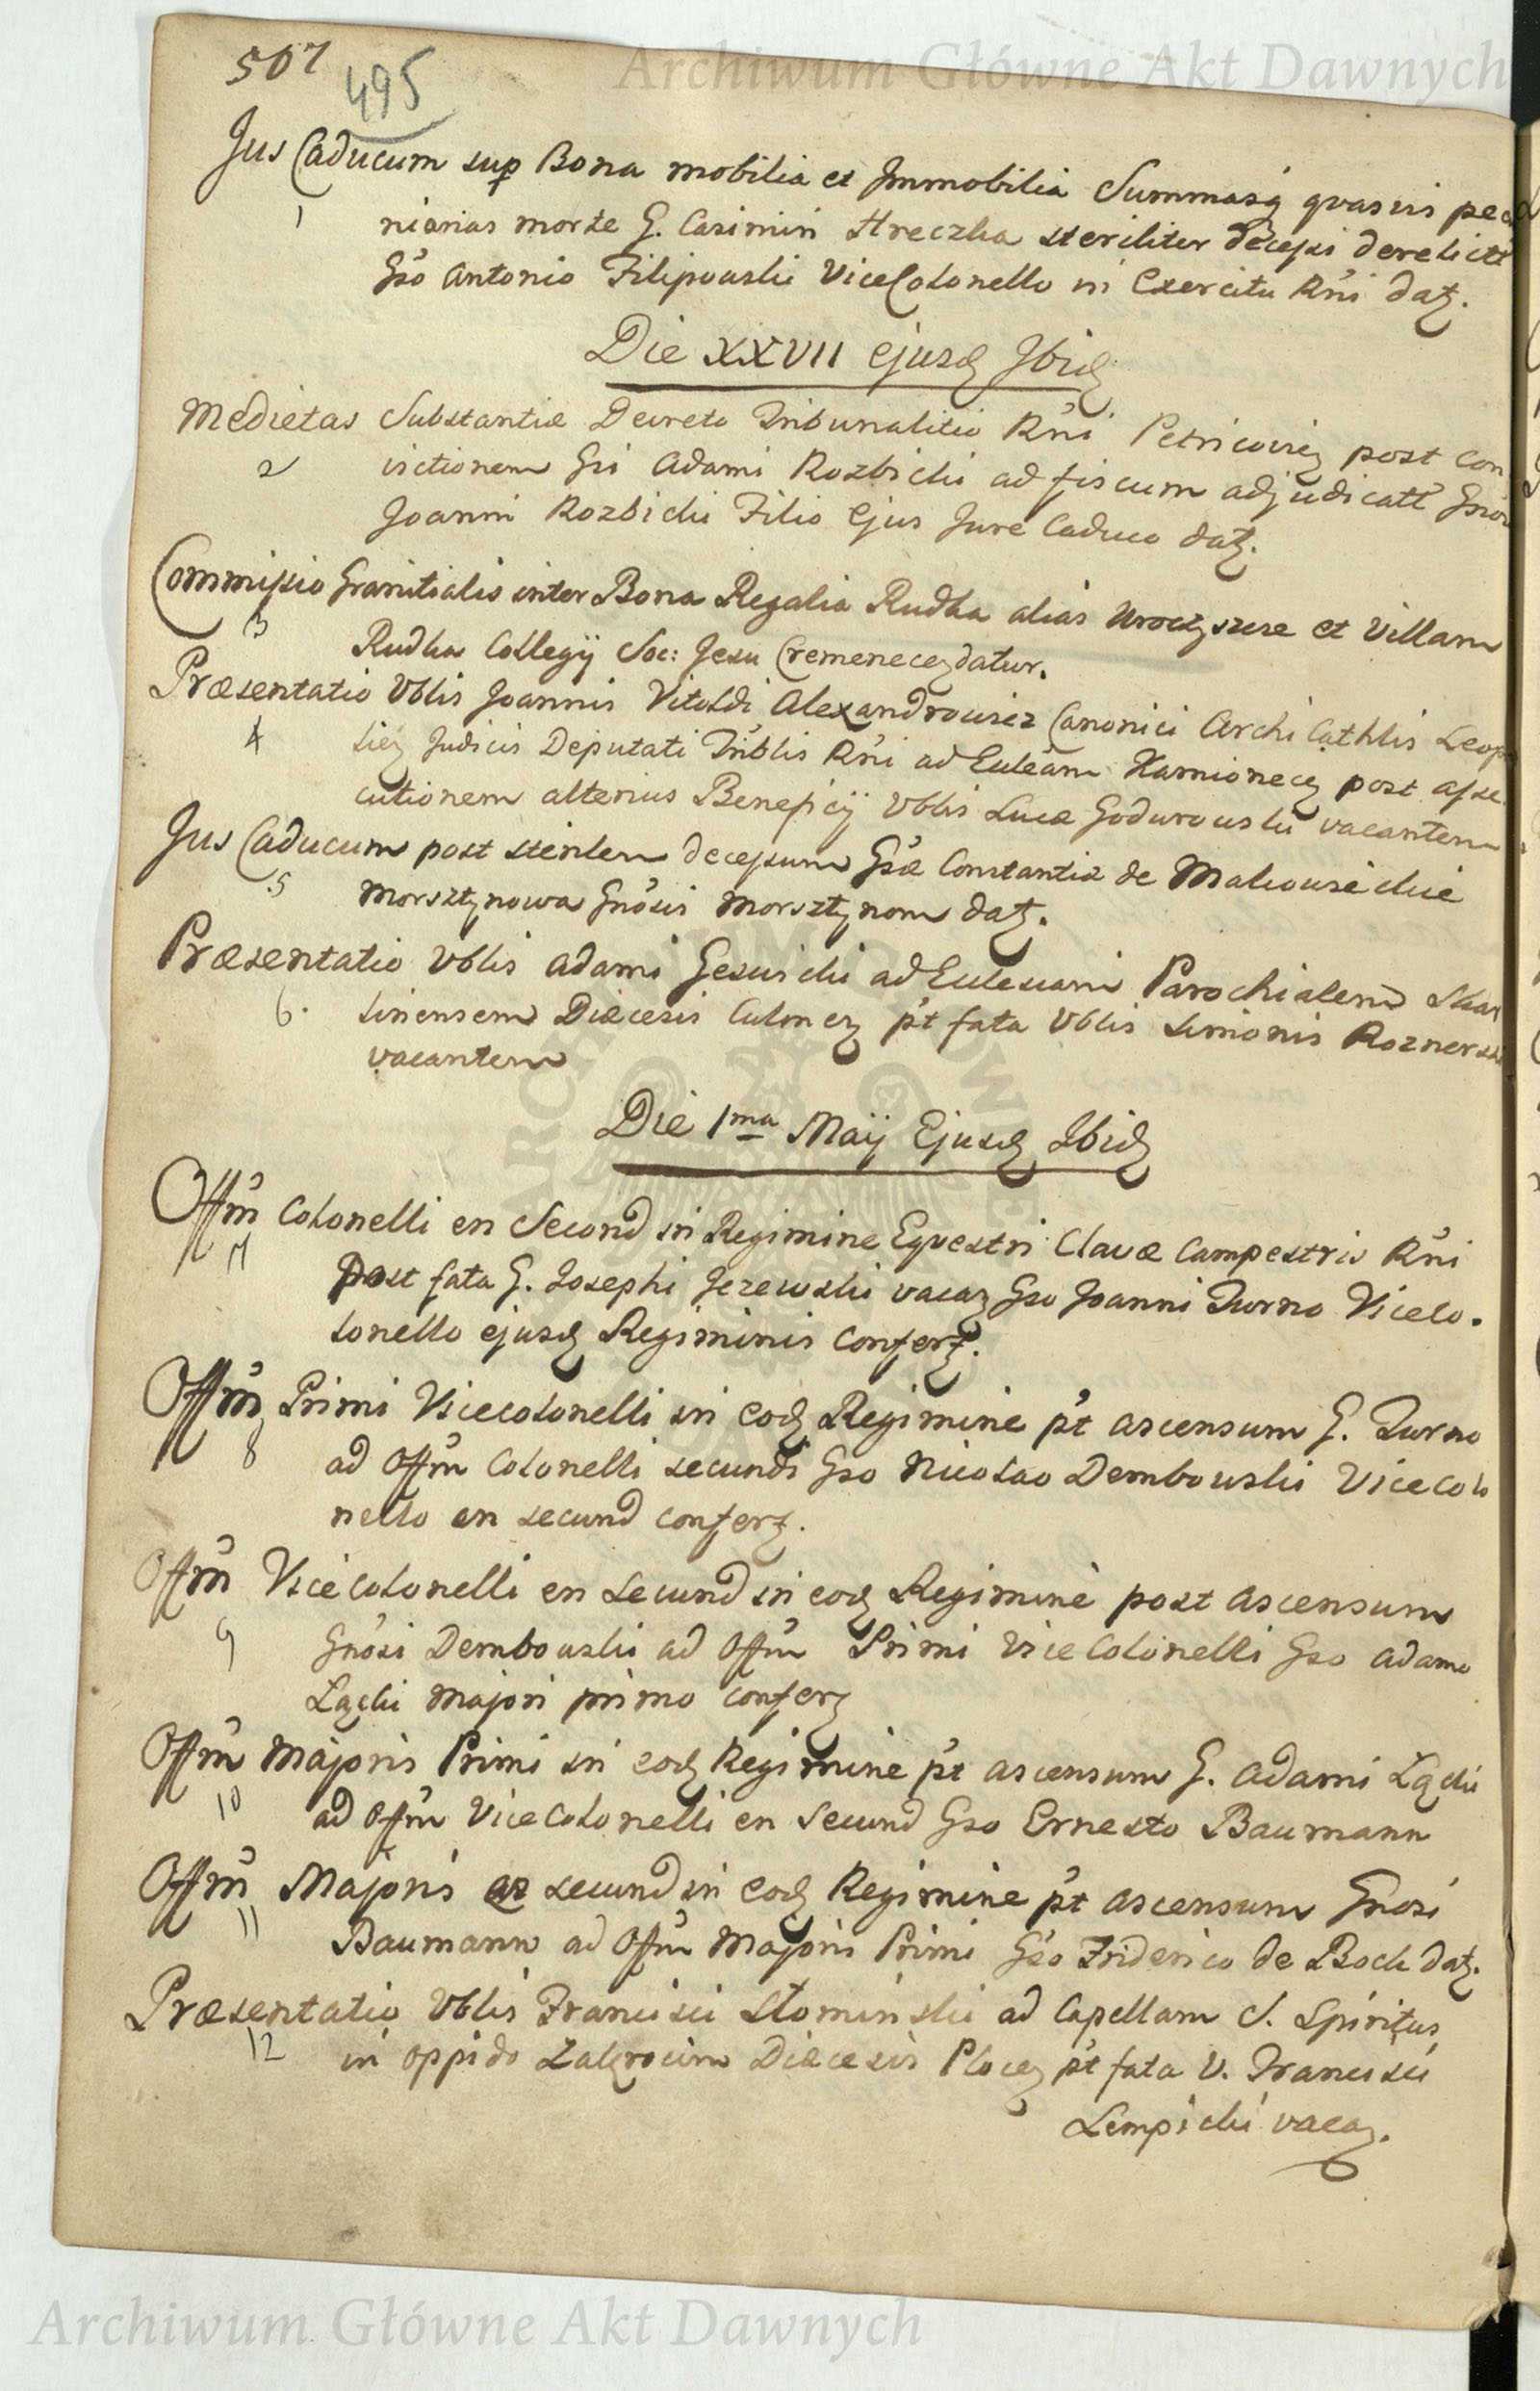 Archiwum Główne Akt Dawnych
507
495
Jus Caducum sup Bona mobilia et Immobilia Summasq quasvis pecu
1
niarias morte G. Casimiri Hreczka steriliter decessi derelictt
Gso Antonio Filipowski ViceColonello in Exercitu Rni datz.
Die XXVII ejusd Ibid
Medietas Substantiæ Decreto Tribunalitio Rni Petricovien post Con
2
victionem Gsi Adami Rozbicki ad fiscum adjudicatt Gnoso
Joanni Rozbicki Filio Ejus Jure Caduco datz.
Commissio Granitialis inter Bona Regalia Rudka alias Uroczysze et Villam
3
Rudka Collegij Soc: Jesu Cremenecez datur.
Præsentatio Vblis Joannis Vitoldi Alexandrowicz Canonici Archi Cathlis Leopo
4
liez Judicis Deputati Triblis Rni ad Eccleam Kamionecz post asse
cutionem alterius Beneficij Vblis Lucæ Godurowski vacantem
Jus Caducum post sterilem decessum Gsæ Constantiæ de Makowieckie
5
Morsztynowa Gnosis Morsztynom datz.
Præsentatio Vblis Adami Gesuicki ad Ecclesiam Parochialem Skar
6.
linensem Diæcesis Culmenz pt fata Vblis Simonis Roznerski
vacantem
Die 1ma Maij Ejusd Ibid
Offm Colonelli en Second in Regimine Eqvestri Clavæ Campestris Rni
7
Post fata G. Josephi Jezewski vacaz Gso Joanni Turno Viceco.
lonello ejusd Regiminis Conferz.
Offm Primi Vicecolonelli in eod Regimine pt ascensum G. Turno
8
ad Offm Colonelli secundi Gso Nicolao Dembowski Vicecolo
nello en secund conferz.
Offm Vicecolonelli en secund in eod Regimine post ascensum
9
Gnosi Dembowski ad Offm Primi ViceColonelli Gso Adamo
Łącki Majori primo conferz
Offm Majoris Primi in eod Regimine pt ascensum G. Adami Łącki
10
ad Offm ViceColonelli en Secund Gso Ernesto Baumann
Offm Majoris en secund in eod Regimine pt ascensum Gnosi
11
Baumann ad Offm Majoris Primi Gso Friderico de Bock datz.
Præsentatio Vblis Francisci Słominski ad Capellam S. Spiritus
12
in oppido Zakrocim Diæcesis Plocez pt fata V. Francisci
Lempicki vacaz.
Archiwum Główne Akt Dawnych